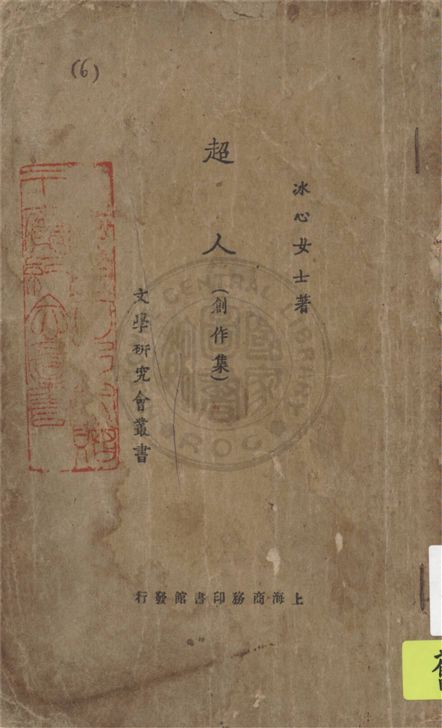 (6)
冰心女士著
超人
(創作集)
文學研究會叢書
上海商務印書館發行
GENERAL
ROC